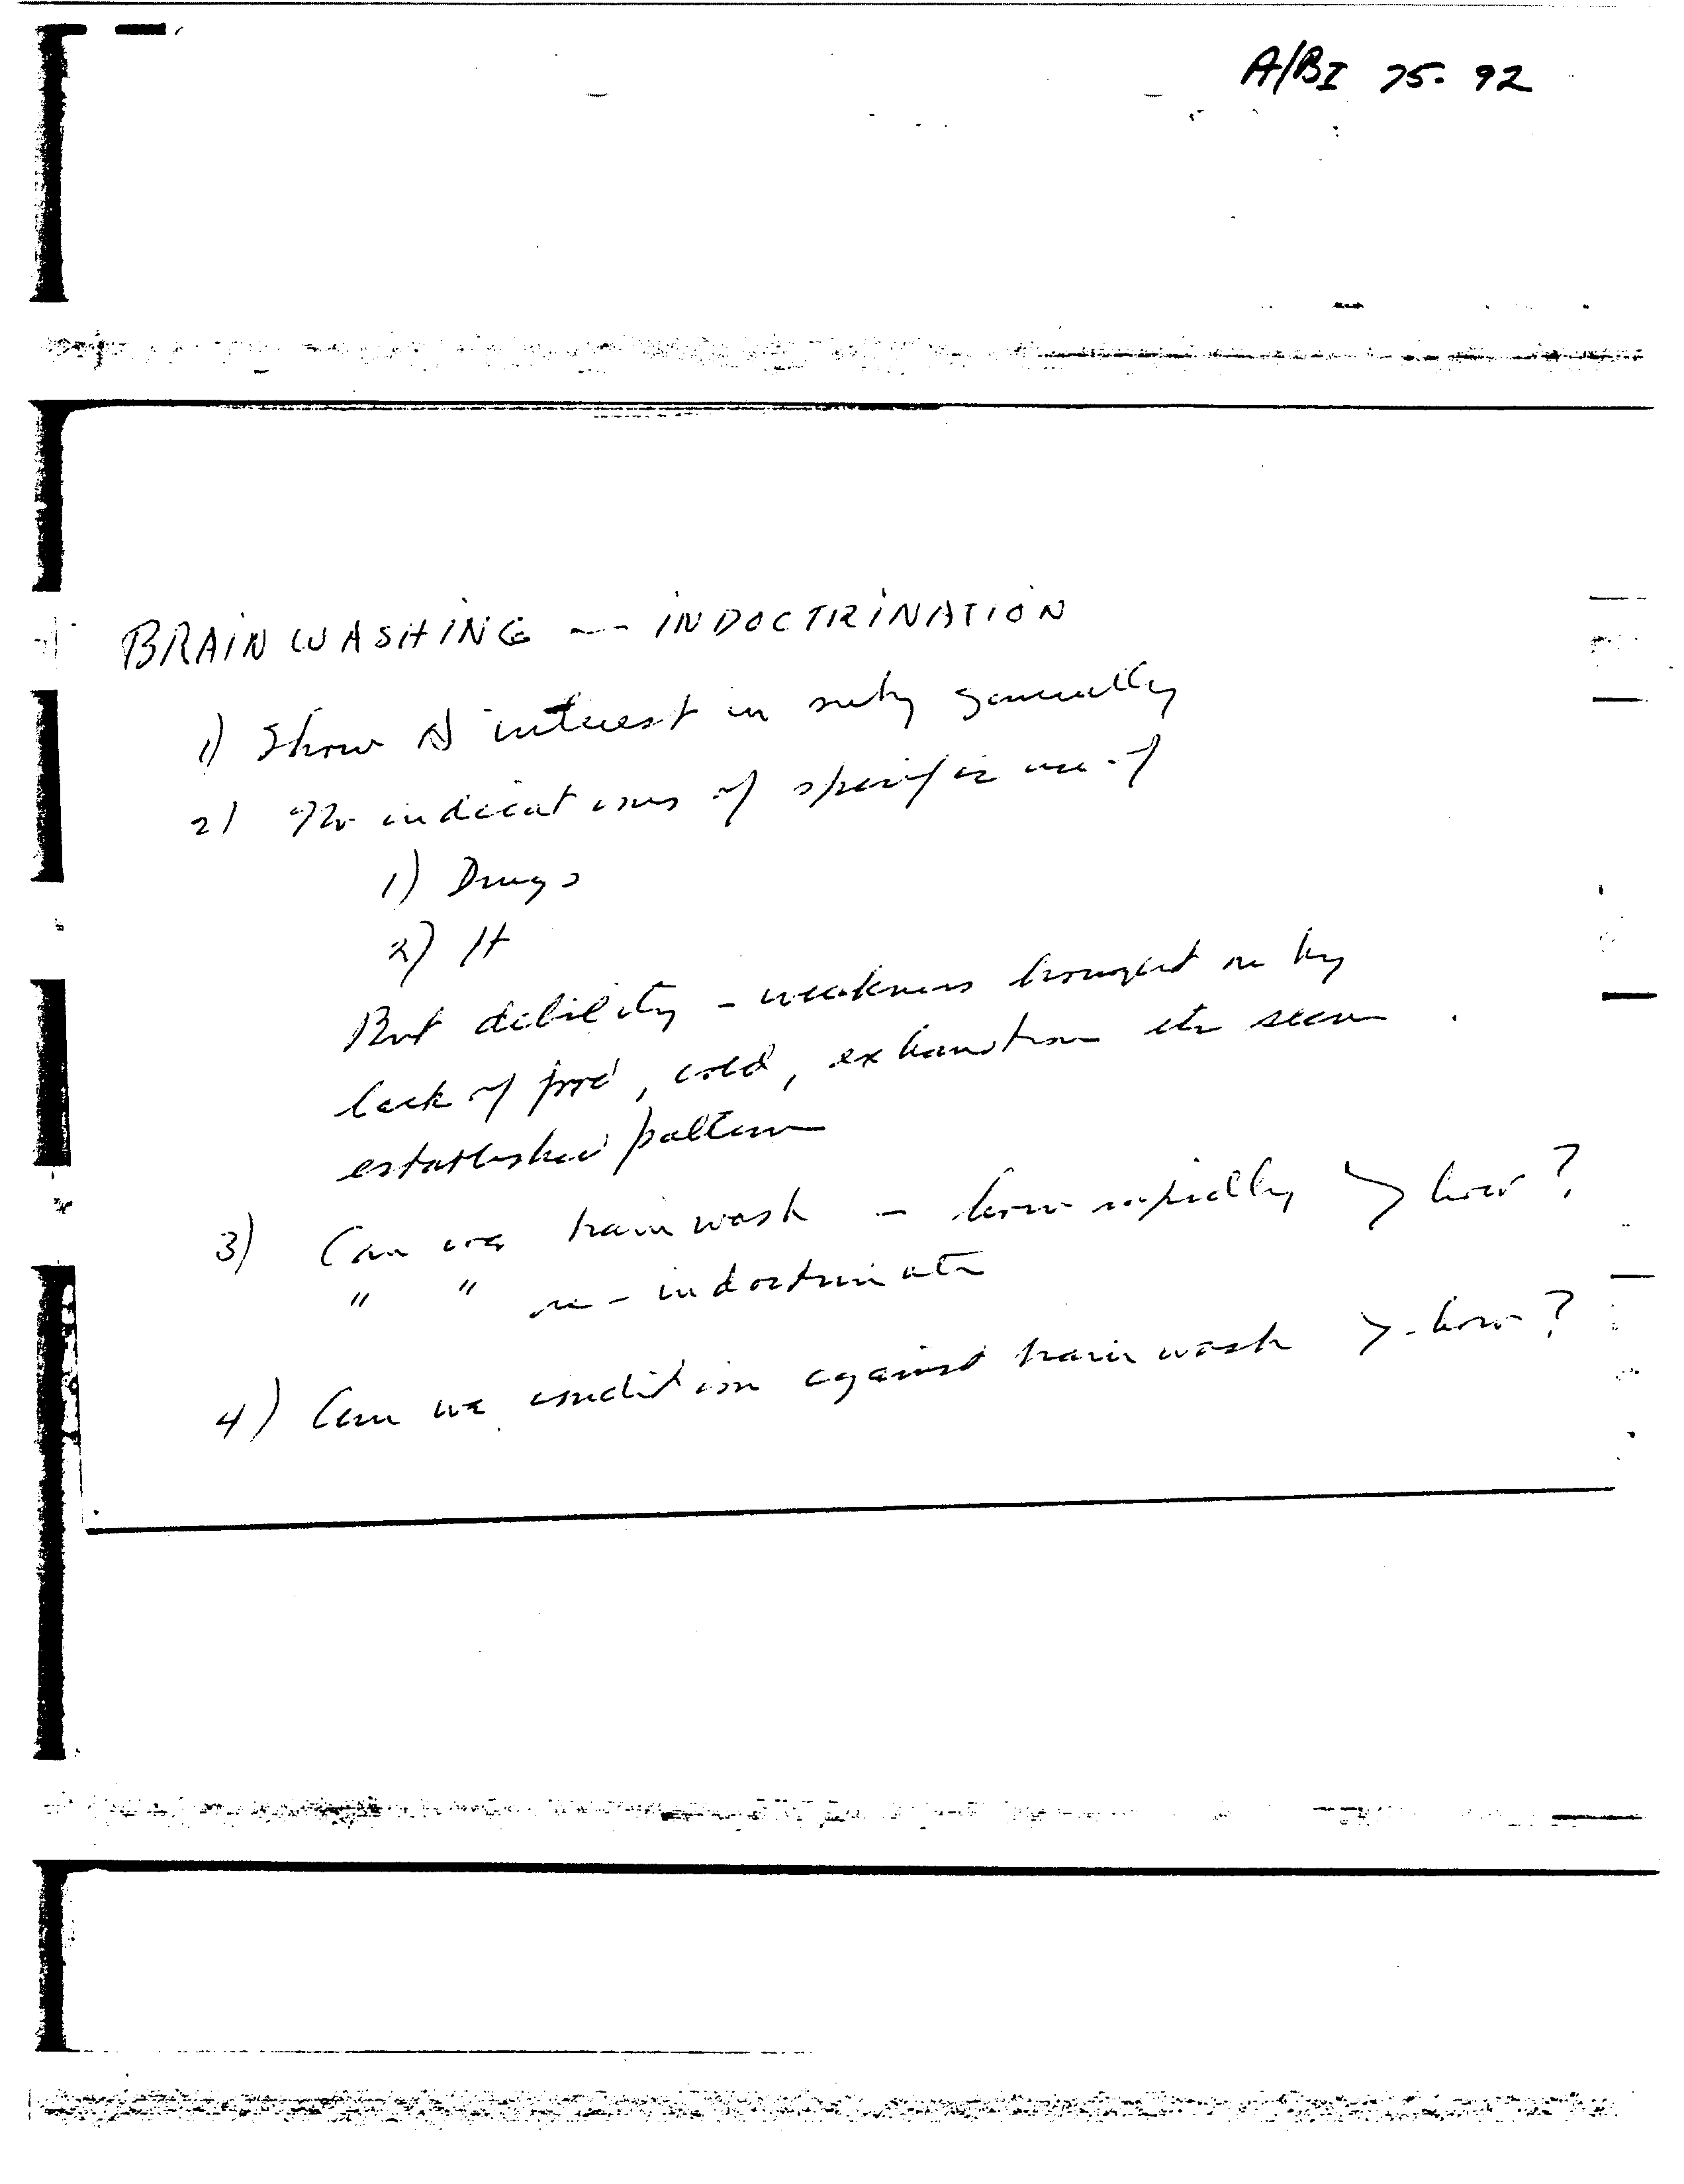 A/BI 75-92
BRAINWASHING -- INDOCTRINATION
1) Show interest in subj generally
2) No indications of specific use of
1) Drugs
2) H
But debility - weakness brought on by
lack of food, cold, exhaustion etc seem
established pattern
3) Can we brain wash - how rapidly > how?
" " re-indoctrinate
4) Can we condition against brain wash > - how?